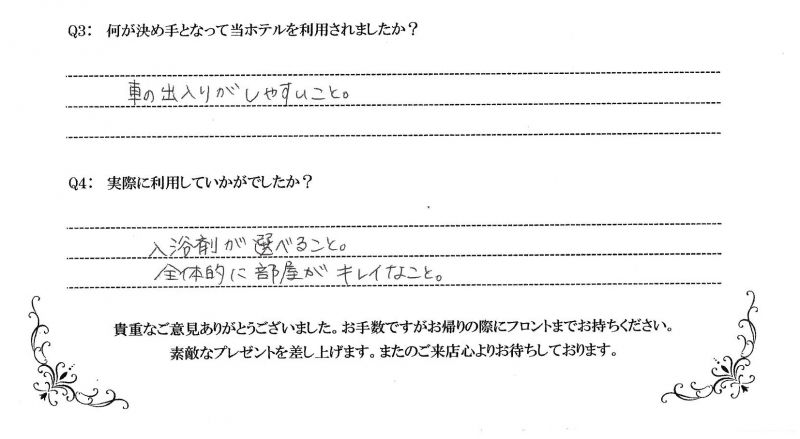 Q3： 何が決め手となって当ホテルを利用されましたか？
車の出入りがしやすいこと。
Q4： 実際に利用していかがでしたか？
入浴剤が選べること。
全体的に部屋がキレイなこと。
貴重なご意見ありがとうございました。お手数ですがお帰りの際にフロントまでお持ちください。
素敵なプレゼントを差し上げます。またのご来店心よりお待ちしております。